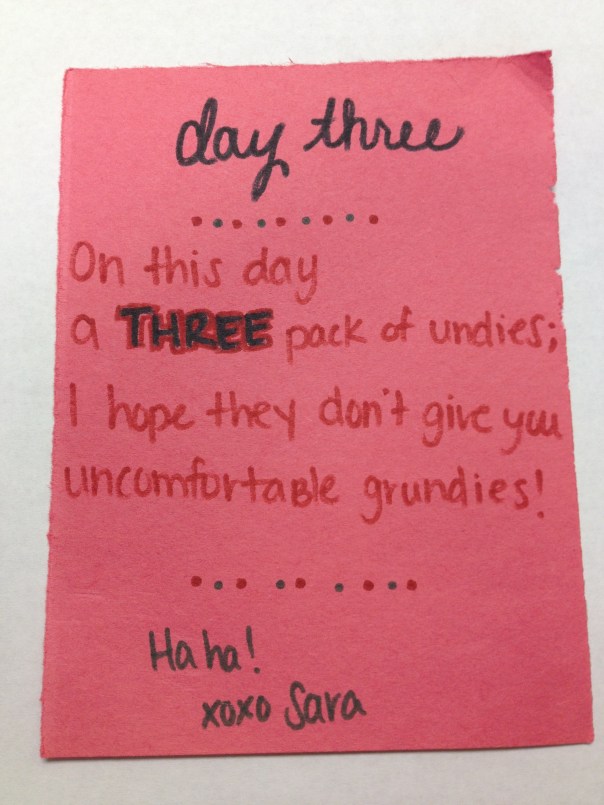 day three
On this day
a THREE pack of undies;
I hope they don't give you
uncomfortable grundies!
Ha ha!
xoxo Sara